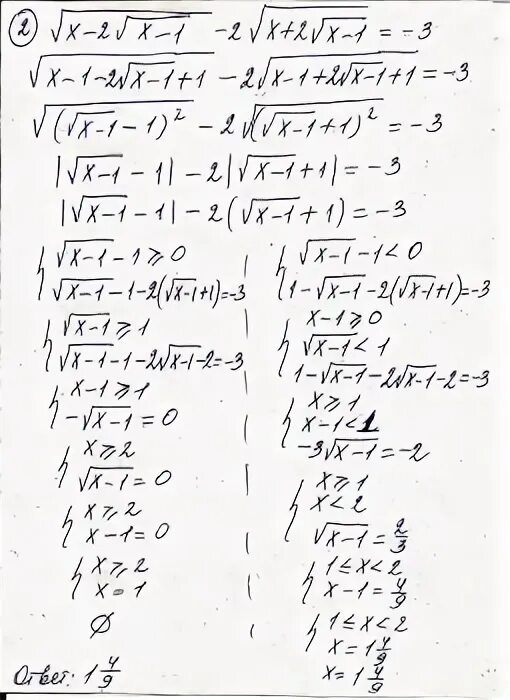 ② √(x-2√(x-1)) - 2√(x+2√(x-1)) = -3
√(x-1-2√(x-1)+1) - 2√(x-1+2√(x-1)+1) = -3
√((√(x-1)-1)²) - 2√((√(x-1)+1)²) = -3
|√(x-1) - 1| - 2|√(x-1)+1| = -3
|√(x-1) - 1| - 2(√(x-1)+1) = -3
{ √(x-1) - 1 ⩾ 0
√(x-1) - 1 - 2(√(x-1)+1) = -3
{ √(x-1) ⩾ 1
√(x-1) - 1 - 2√(x-1) - 2 = -3
{ x-1 ⩾ 1
-√(x-1) = 0
{ x ⩾ 2
√(x-1) = 0
{ x ⩾ 2
x-1 = 0
{ x ⩾ 2
x = 1
∅
{ √(x-1) - 1 < 0
1 - √(x-1) - 2(√(x-1)+1) = -3
{ x-1 ⩾ 0
√(x-1) < 1
1 - √(x-1) - 2√(x-1) - 2 = -3
{ x ⩾ 1
x-1 < 1
-3√(x-1) = -2
{ x ⩾ 1
x < 2
√(x-1) = 2/3
{ 1 ≤ x < 2
x-1 = 4/9
{ 1 ≤ x < 2
x = 1 4/9
x = 1 4/9
Ответ: 1 4/9